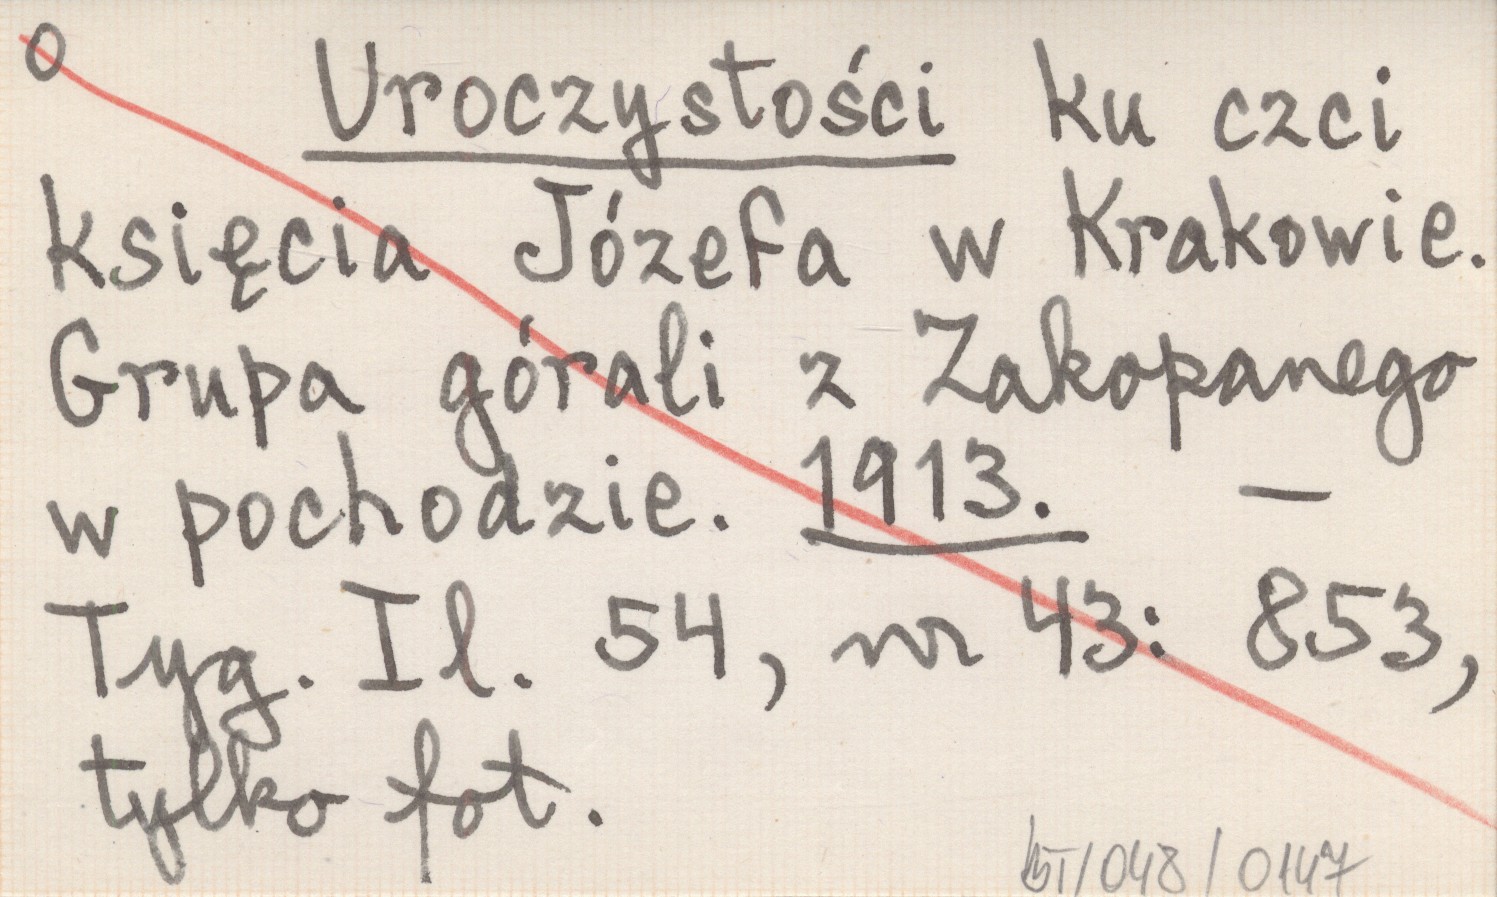 0
Uroczystości ku czci
księcia Józefa w Krakowie.
Grupa górali z Zakopanego
w pochodzie. 1913. —
Tyg. Il. 54, nr 43: 853,
tylko fot.
/048/0147